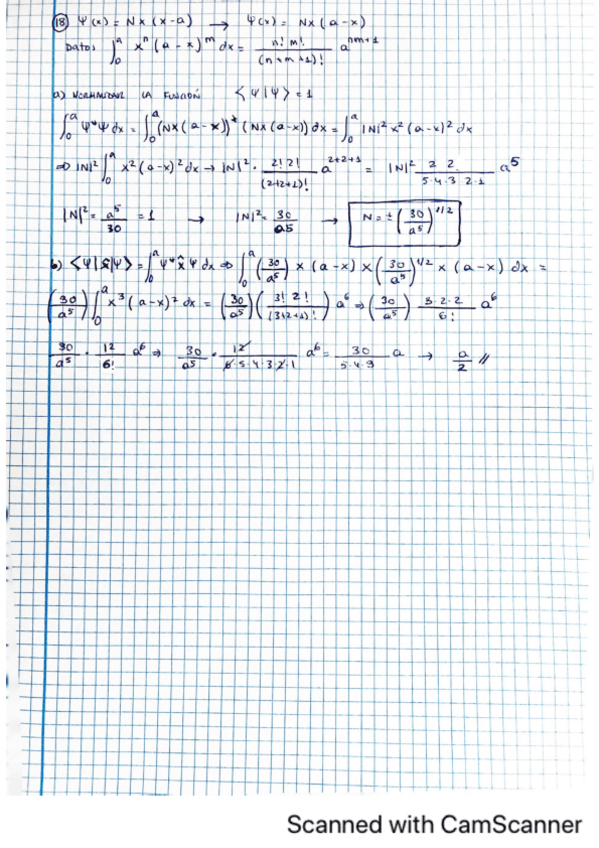 18) Ψ(x) = Nx(x-a) → Ψ(x) = Nx(a-x)
Datos ∫₀ᵃ xⁿ(a-x)ᵐ dx = n! m! / (n+m+1)! a^(nm+1)
a) NORMALIZAR LA FUNCIÓN ⟨Ψ|Ψ⟩ = 1
∫₀ᵃ Ψ*Ψ dx = ∫₀ᵃ (Nx(a-x))* (Nx(a-x)) dx = ∫₀ᵃ |N|² x²(a-x)² dx
⇒ |N|² ∫₀ᵃ x²(a-x)² dx → |N|² · 2! 2! / (2+2+1)! a^(2+2+1) = |N|² 2 2 / 5·4·3 2·1 a⁵
|N|² = a⁵/30 = 1 → |N|² = 30/a5 → N = ± (30/a⁵)^(1/2)
b) ⟨Ψ|x̂|Ψ⟩ = ∫₀ᵃ Ψ* x̂ Ψ dx ⇒ ∫₀ᵃ (30/a⁵) x (a-x) x (30/a⁵)^(1/2) x (a-x) dx =
(30/a⁵) ∫₀ᵃ x³(a-x)² dx = (30/a⁵) (3! 2! / (3+2+1)!) a⁶ ⇒ (30/a⁵) 3·2·2 / 6! a⁶
30/a⁵ · 12/6! a⁶ ⇒ 30/a⁵ · 12 / 6·5·4·3·2·1 a⁶ = 30 / 5·4·3 a → a/2 //
Scanned with CamScanner